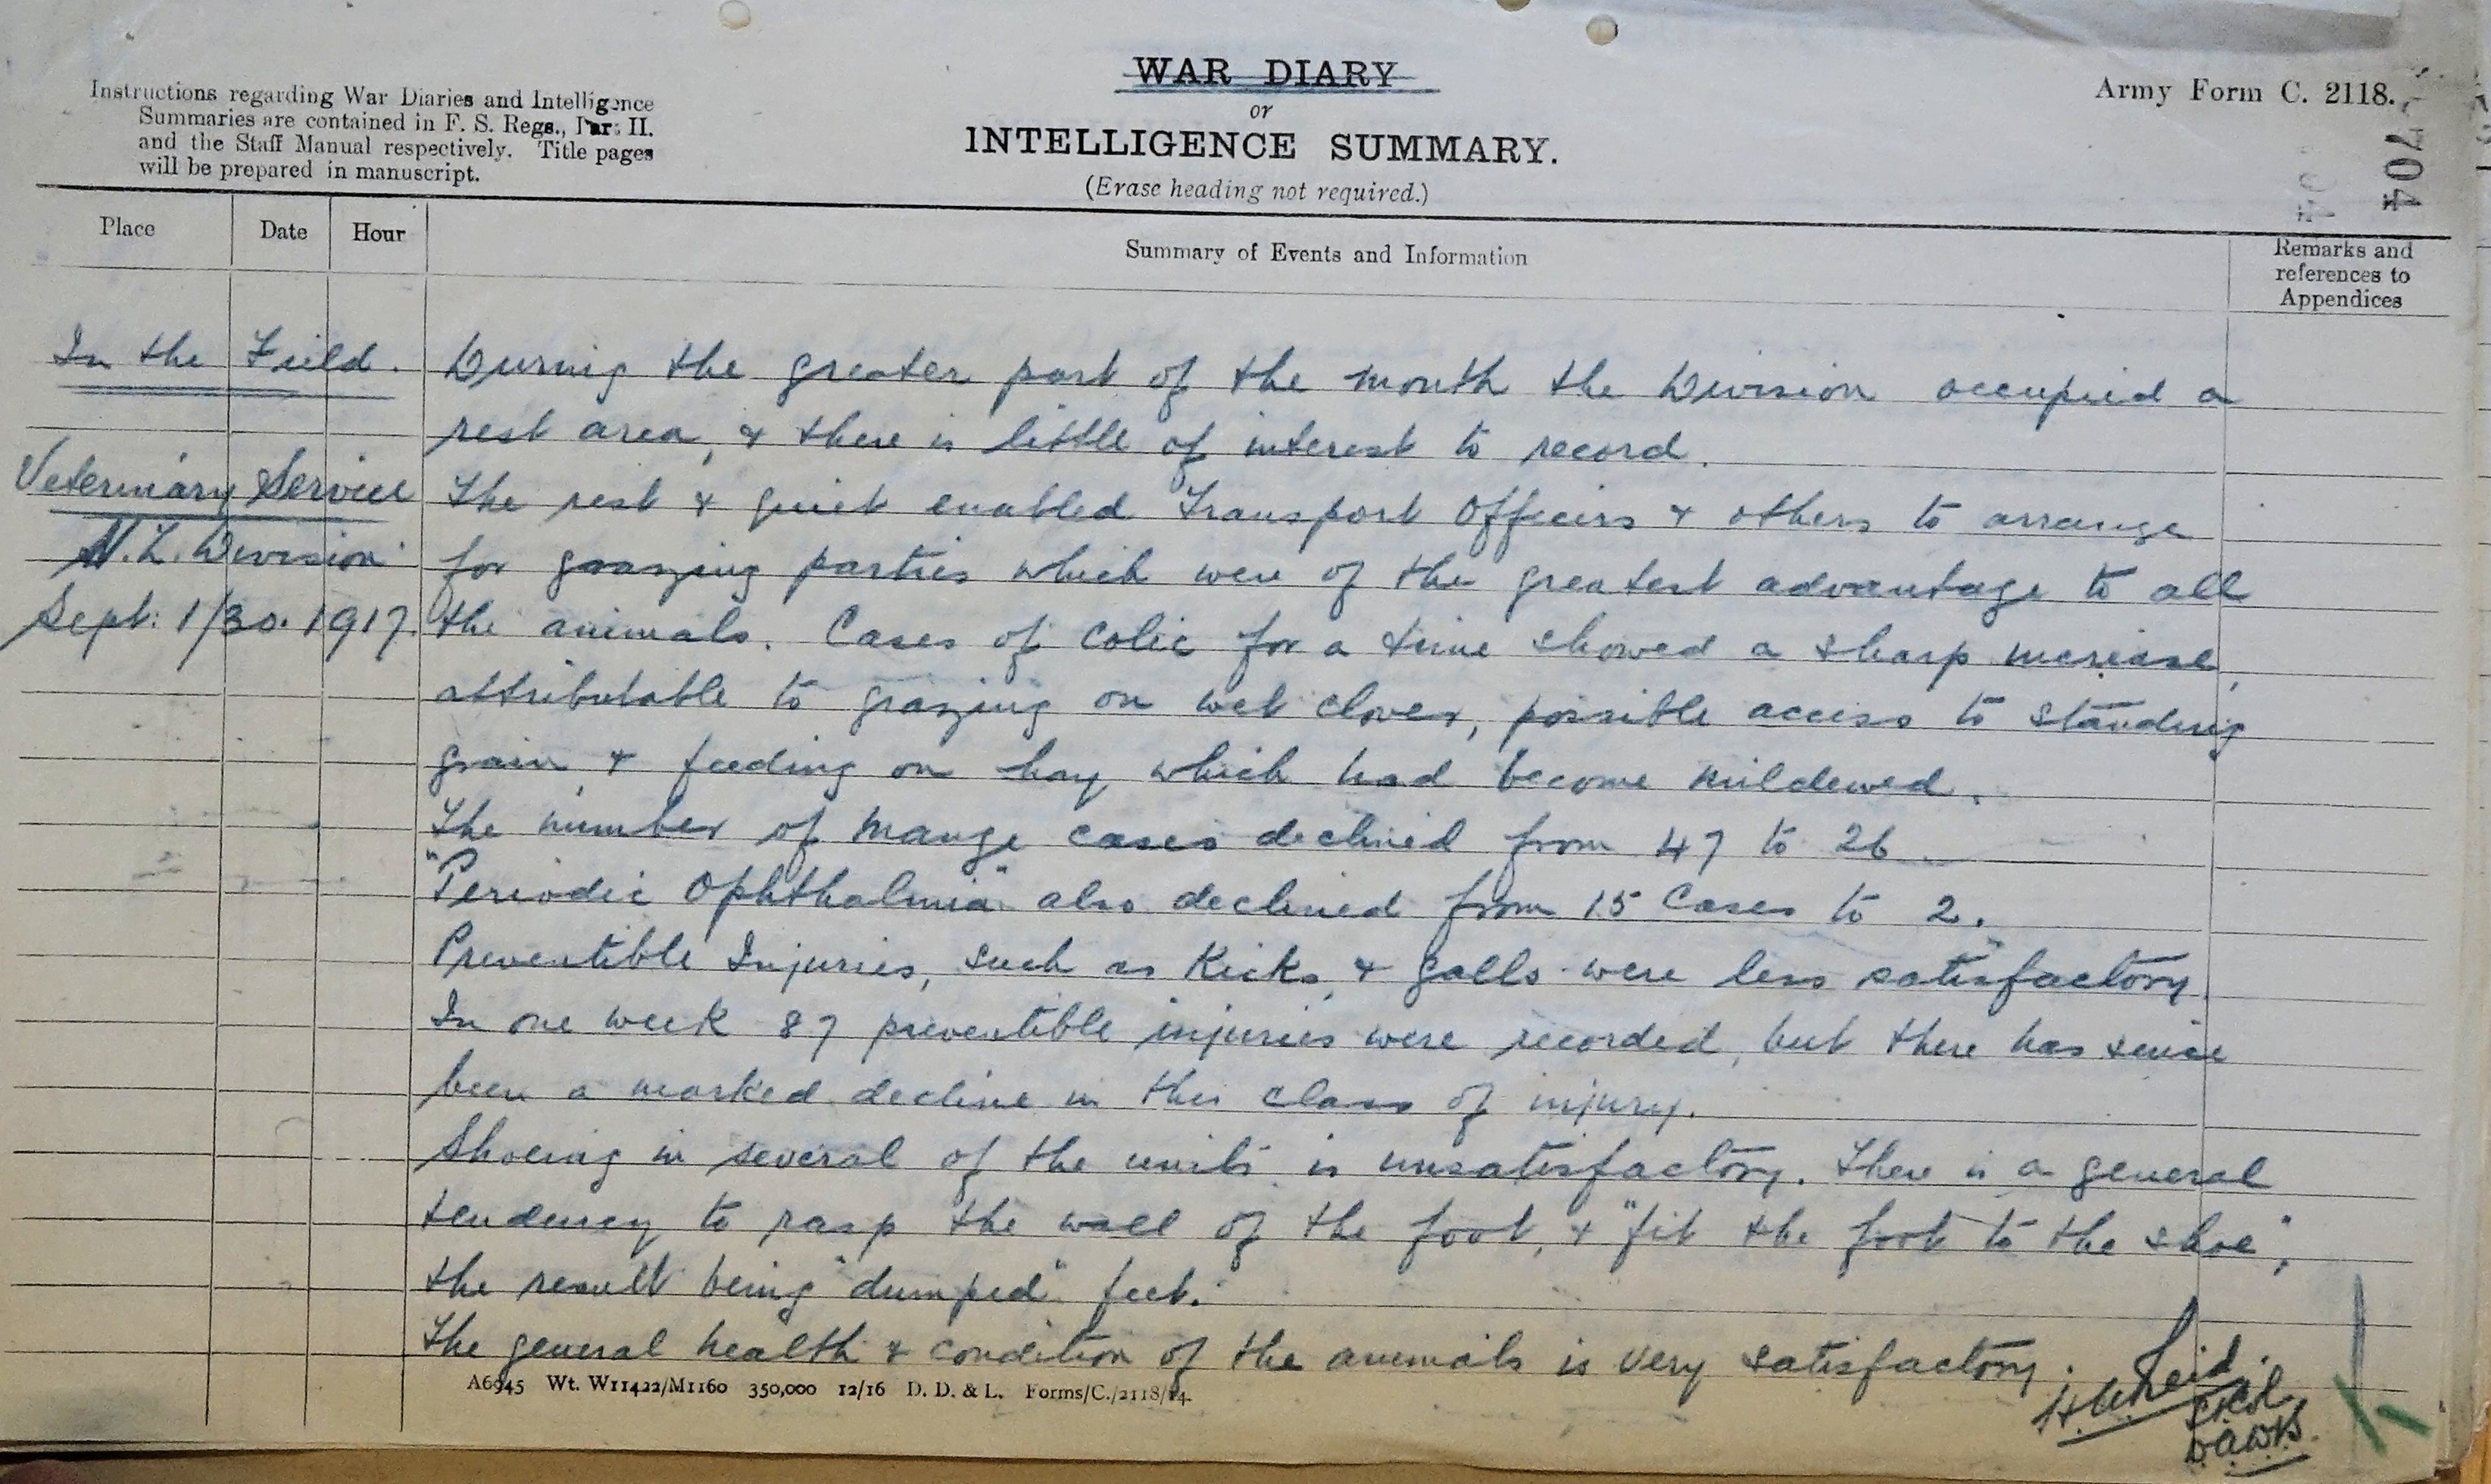 Instructions regarding War Diaries and Intelligence
Summaries are contained in F. S. Regs., Part II.
and the Staff Manual respectively. Title pages
will be prepared in manuscript.
WAR DIARY
or
INTELLIGENCE SUMMARY.
(Erase heading not required.)
Army Form C. 2118.
704
Place
Date
Hour
Summary of Events and Information
Remarks and
references to
Appendices
In the Field.
Veterinary Service
N.Z. Division
Sept: 1/30. 1917.
During the greater part of the month the Division occupied a
rest area, & there is little of interest to record.
The rest & quiet enabled Transport Officers & others to arrange
for grazing parties which were of the greatest advantage to all
the animals. Cases of Colic for a time showed a sharp increase,
attributable to grazing on wet clover, possible access to standing
grain, & feeding on hay which had become mildewed.
The number of mange cases declined from 47 to 26.
"Periodic Ophthalmia" also declined from 15 Cases to 2.
Preventible Injuries, such as Kicks, & galls were less satisfactory.
In one week 87 preventible injuries were recorded, but there has since
been a marked decline in this class of injury.
Shoeing in several of the units is unsatisfactory. There is a general
tendency to rasp the wall of the foot, & "fit the foot to the shoe",
the result being "dumped" feet.
The general health & condition of the animals is very satisfactory.
A6945 Wt. W11422/M1160 350,000 12/16 D. D. & L. Forms/C./2118/14.
Reid.